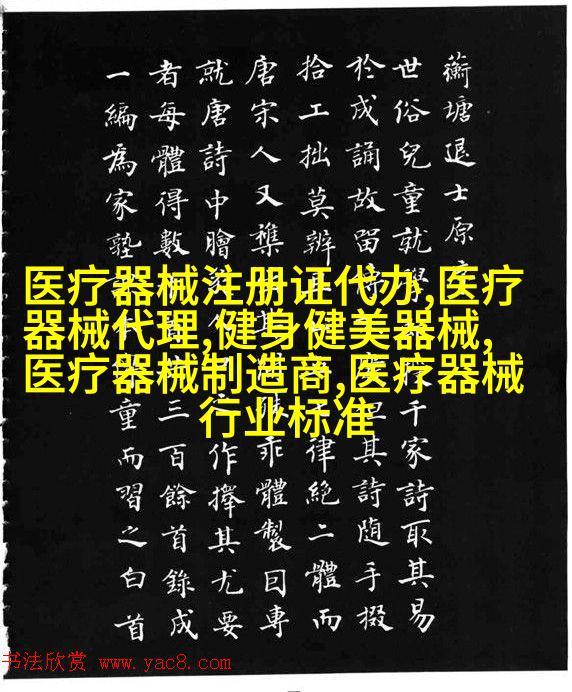 蘅塘退士原
世俗兒童就學 千家詩取其易
於成誦故留 其詩隨手掇
拾工拙莫辨 律絕二體而
唐宋人又雜 乖體製因專
就唐詩中膾 作擇其尤要
者每體得數 三百餘首錄成
一編爲家塾 童而習之白首
医疗器械注册证代办,医疗
器械代理,健身健美器械,
医疗器械制造商,医疗器械
行业标准
书法欣赏 www.yac8.com